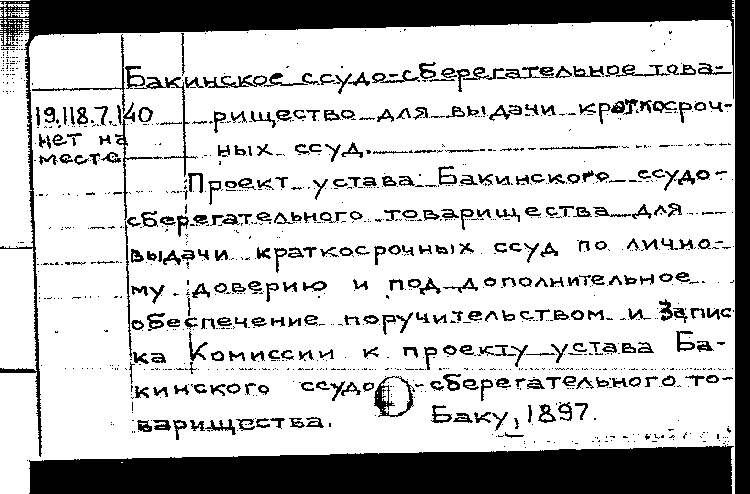 Бакинское ссудо-сберегательное това-
19.118.7.140 рищество для выдачи краткосроч-
нет на
месте
ных ссуд.
Проект устава Бакинского ссудо-
сберегательного товарищества для
выдачи краткосрочных ссуд по лично-
му доверию и под дополнительное
обеспечение поручительством и Запис
ка Комиссии к проекту устава Ба-
кинского ссудо-сберегательного то-
варищества. Баку, 1897.